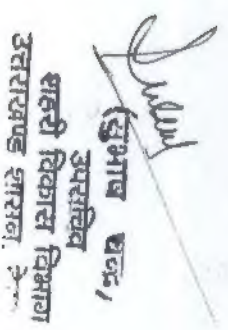 (सुभाष चन्द्र)
उपसचिव
शहरी विकास विभाग
उत्तराखण्ड शासन,